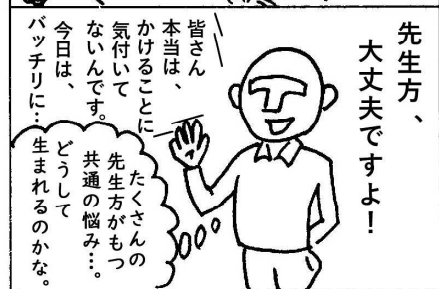 先生方、
大丈夫ですよ!
皆さん
本当は、
かけることに
気付いて
ないんです。
今日は、
バッチリに…
たくさんの
先生方がもつ
共通の悩み…。
どうして
生まれるのかな。